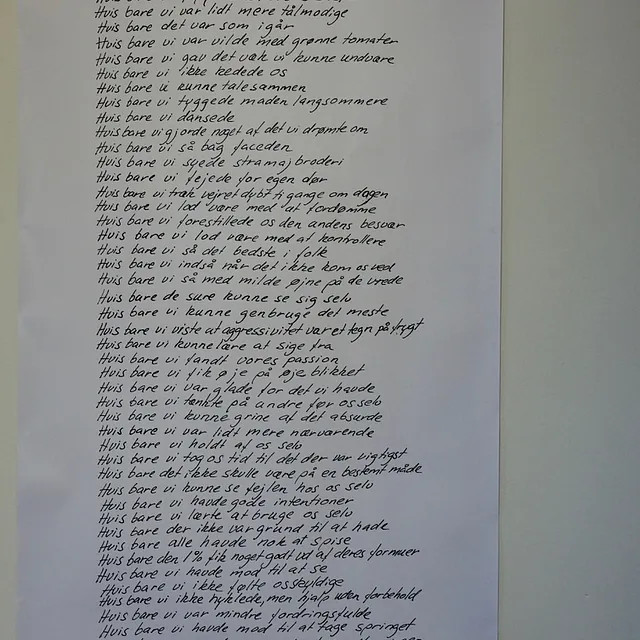 Hvis bare vi var lidt mere tålmodige
Hvis bare det var som igår
Hvis bare vi var vilde med grønne tomater
Hvis bare vi gav det væk vi kunne undvære
Hvis bare vi ikke kedede os
Hvis bare vi kunne talesammen
Hvis bare vi tyggede maden langsommere
Hvis bare vi dansede
Hvis bare vi gjorde noget af det vi drømte om
Hvis bare vi så bag facaden
Hvis bare vi syede stramajbroderi
Hvis bare vi fejede for egen dør
Hvis bare vi trak vejret dybt ti gange om dagen
Hvis bare vi lod være med at fordømme
Hvis bare vi forestillede os den andens besvær
Hvis bare vi lod være med at kontrollere
Hvis bare vi så det bedste i folk
Hvis bare vi indså når det ikke kom os ved
Hvis bare vi så med milde øjne på de vrede
Hvis bare de sure kunne se sig selv
Hvis bare vi kunne genbruge det meste
Hvis bare vi viste at aggressivitet var et tegn på frygt
Hvis bare vi kunne lære at sige fra
Hvis bare vi fandt vores passion
Hvis bare vi fik øje på øjeblikket
Hvis bare vi var glade for det vi havde
Hvis bare vi tænkte på andre før os selv
Hvis bare vi kunne grine af det absurde
Hvis bare vi var lidt mere nærværende
Hvis bare vi holdt af os selv
Hvis bare vi tog os tid til det der var vigtigst
Hvis bare det ikke skulle være på en bestemt måde
Hvis bare vi kunne se fejlen hos os selv
Hvis bare vi havde gode intentioner
Hvis bare vi lærte at bruge os selv
Hvis bare der ikke var grund til at hade
Hvis bare alle havde nok at spise
Hvis bare den 1% fik noget godt ud af deres formuer
Hvis bare vi havde mod til at se
Hvis bare vi ikke følte os skyldige
Hvis bare vi ikke hyklede, men hjalp uden forbehold
Hvis bare vi var mindre fordringsfulde
Hvis bare vi havde mod til at tage springet